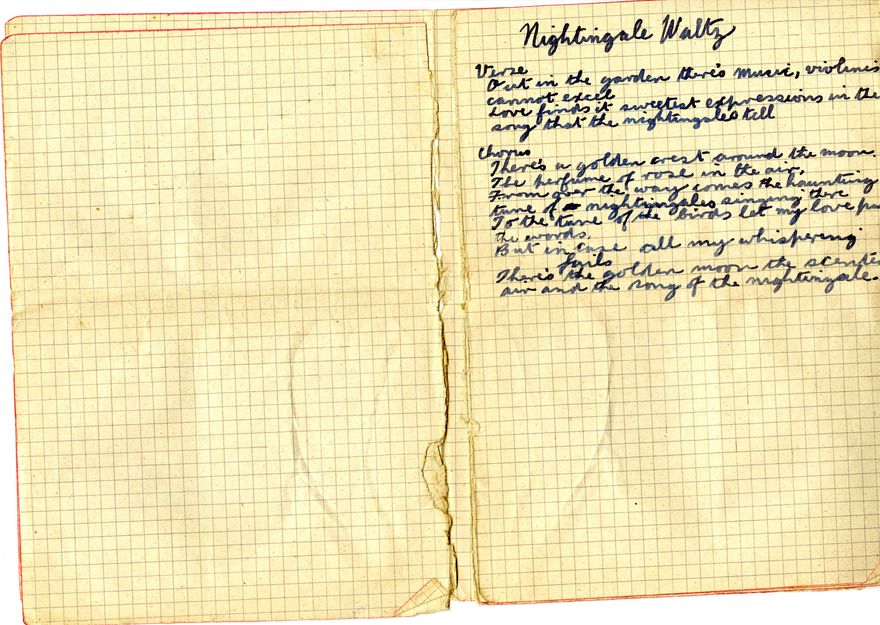 Nightingale Waltz
Verse
Out in the garden there's music, violins
cannot excel
Love finds it sweetest expressions in the
song that the nightingales tell
Chorus
There's a golden crest around the moon.
The perfume of rose in the air,
From over the way comes the haunting
tune of nightingales singing there
To the tune of the birds let my love pu
the words.
But in case all my whispering
fails
There's the golden moon the scente
air and the song of the nightingale.